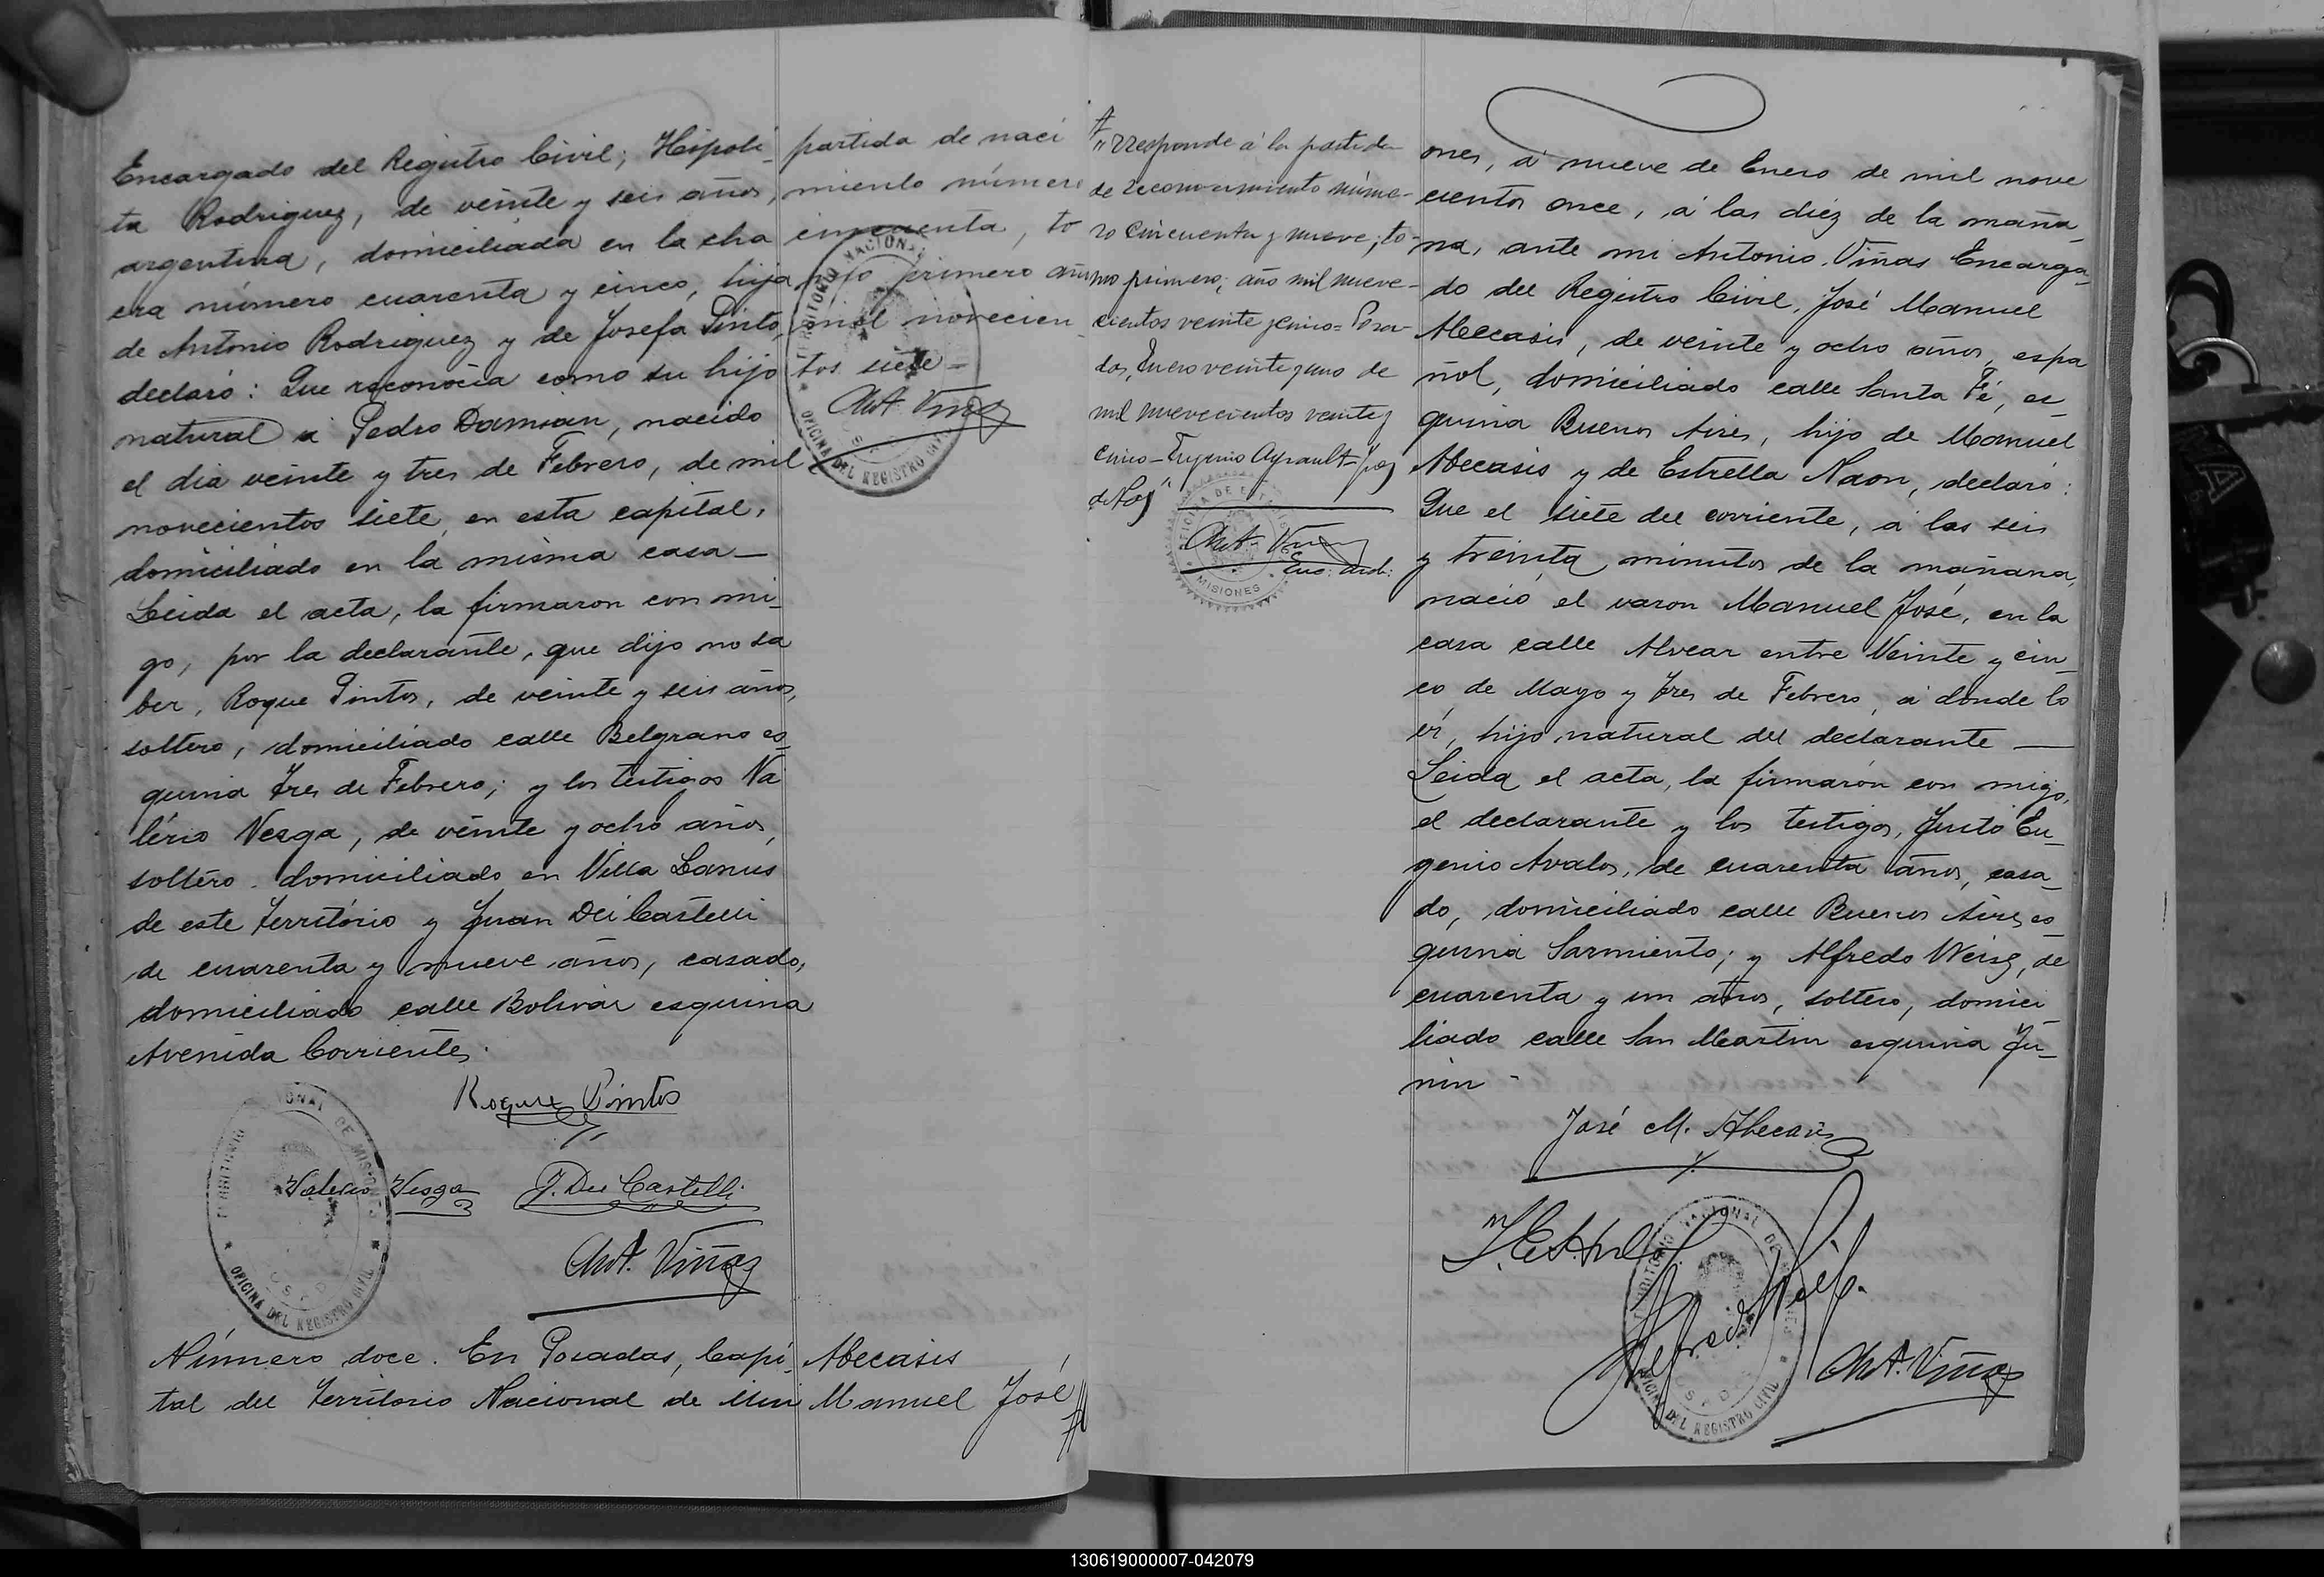 Encargado del Registro Civil, Hipoli_
ta Rodriguez, de veinte y seis años,
argentina, domiciliada en la cha
cra número cuarenta y cinco, hija
de Antonio Rodriguez y de Josefa Pinto,
declaró: Que reconocia como su hijo
natural a Pedro Damian, nacido
el dia veinte y tres de Febrero, de mil
novecientos siete, en esta capital,
domiciliado en la misma casa_
Leida el acta, la firmaron con mi_
go, por la declarante, que dijo no sa
ber, Roque Pintos, de veinte y seis años,
soltero, domiciliado calle Belgrano es_
quina Tres de Febrero; y los testigos Va
lério Vesga, de veinte y ocho años,
soltero, domiciliado en Villa Lanus
de este Territorio y Juan Dei Castelli
de cuarenta y nueve años, casado,
domiciliado calle Bolivar esquina
Avenida Corrientes.
Roque Pintos
Valerio Vesga J. Dei Castelli
Ant. Viñas
TERRITORIO NACIONAL DE MISIONES
OFICINA DEL REGISTRO CIVIL
Número doce. En Posadas, Capi_
tal del Territorio Nacional de Misi
partida de naci
miento número
cincuenta, to
mo primero año
mil novecien
tos siete_
Ant. Viñas
TERRITORIO NACIONAL
OFICINA DEL REGISTRO CIVIL
Abecasis
Manuel José
"rresponde á la partida
de reconocimiento núme-
ro cincuenta y nueve; to-
mo primero; año mil nueve-
cientos veinte y cinco= Posa-
das, Enero veinte y uno de
mil nuevecientos veinte y
cinco_ Eugenio Ayrault_ Juez
de Paz"
Ant. Viñas
Enc: arch:
MISIONES
ones, á nueve de Enero de mil nove
cientos once, á las diéz de la maña_
na, ante mi Antonio Viñas Encarga_
do del Registro Civil, José Manuel
Abecasis, de veinte y ocho años, espa
ñol, domiciliado calle Santa Fé, es_
quina Buenos Aires, hijo de Manuel
Abecasis y de Estrella Naon, declaró:
Que el siete del corriente, á las seis
y treinta minutos de la mañana,
nació el varon Manuel José, en la
casa calle Alvear entre Veinte y cin_
co de Mayo y Tres de Febrero, á donde lo
ví, hijo natural del declarante _
Leida el acta, la firmarón con migo,
el declarante y los testigos, Justo Eu_
genio Avalos, de cuarenta años, casa_
do, domiciliado calle Buenos Aires es_
quina Sarmiento; y Alfredo Weisz, de
cuarenta y un años, soltero, domici_
liado calle San Martin esquina Ju_
nin -
José M. Abecasis
Alfredo
Ant. Viñas
TERRITORIO NACIONAL DE MISIONES
OFICINA DEL REGISTRO CIVIL
130619000007-042079